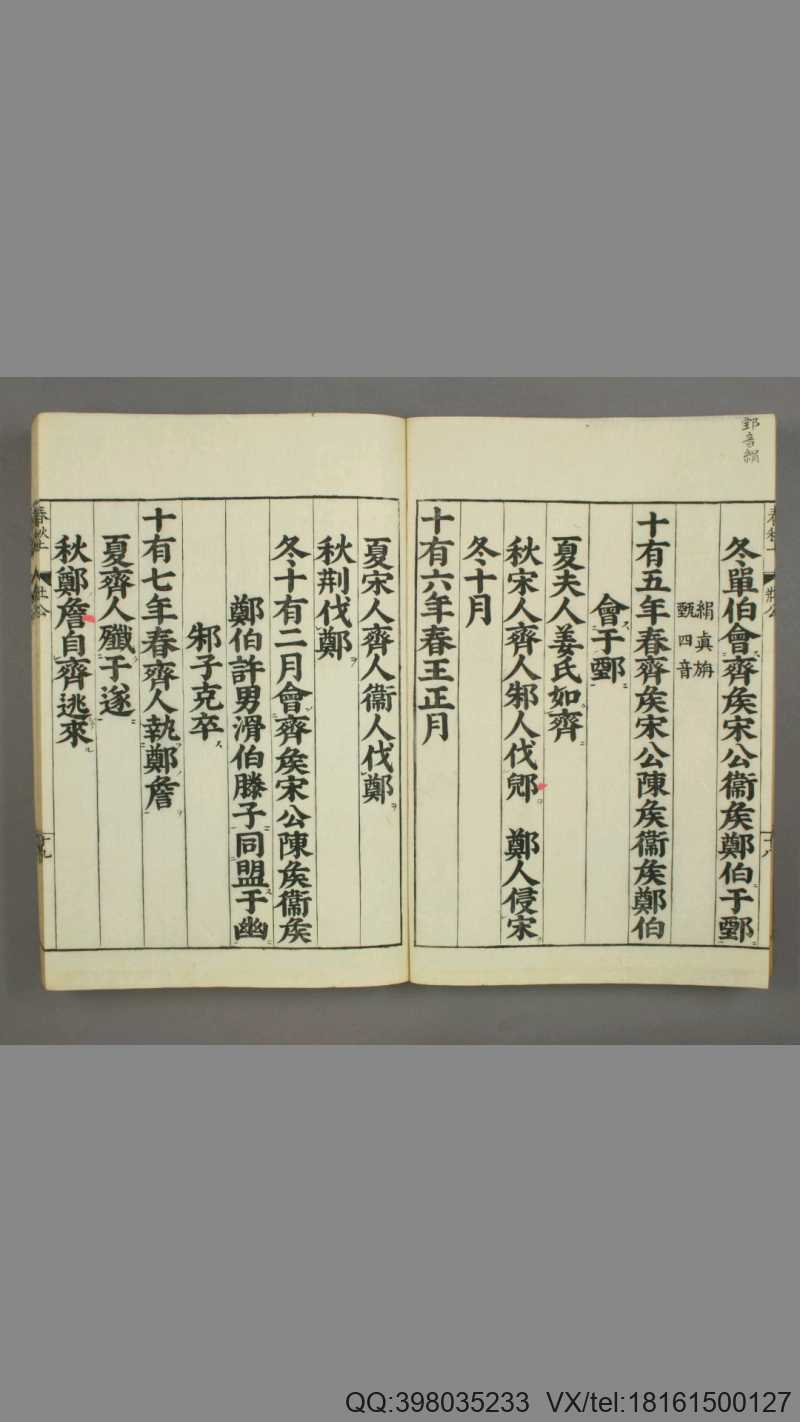 鄄音絹
冬單伯會齊矦宋公衞矦鄭伯于鄄
絹真旃
甄四音
十有五年春齊矦宋公陳矦衞矦鄭伯
會于鄄
夏夫人姜氏如齊
秋宋人齊人邾人伐郳　鄭人侵宋
冬十月
十有六年春王正月
夏宋人齊人衞人伐鄭
秋荆伐鄭
冬十有二月會齊矦宋公陳矦衞矦
鄭伯許男滑伯滕子同盟于幽
邾子克卒
十有七年春齊人執鄭詹
夏齊人殱于遂
秋鄭詹自齊逃來
春秋上
莊公
十八
十九
QQ:398035233 VX/tel:18161500127